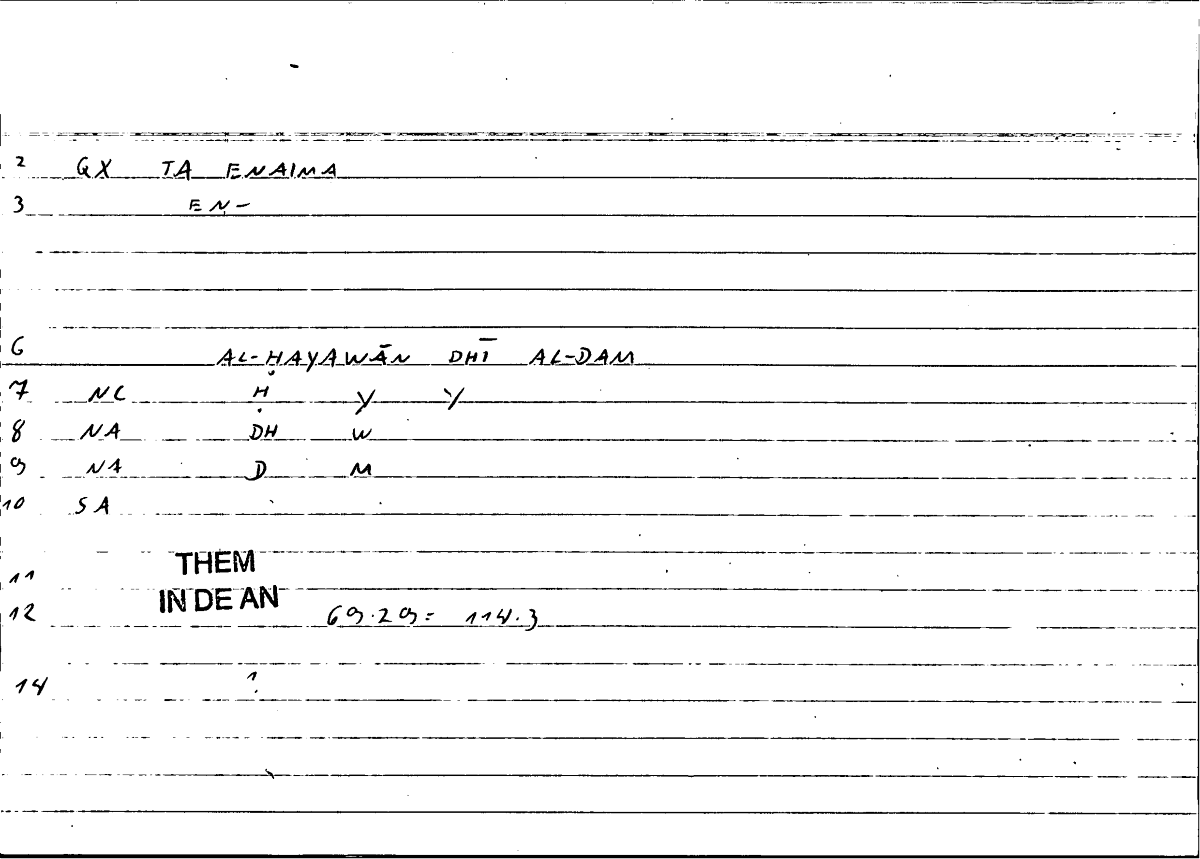 2 GX TA ENAIMA
3 EN-
6 AL-ḤAYAWĀN DHĪ AL-DAM
7 NC Ḥ Y Y
8 NA DH W
9 NA D M
10 SA
11 THEM
12 IN DE AN 69.29= 114.3
14 1